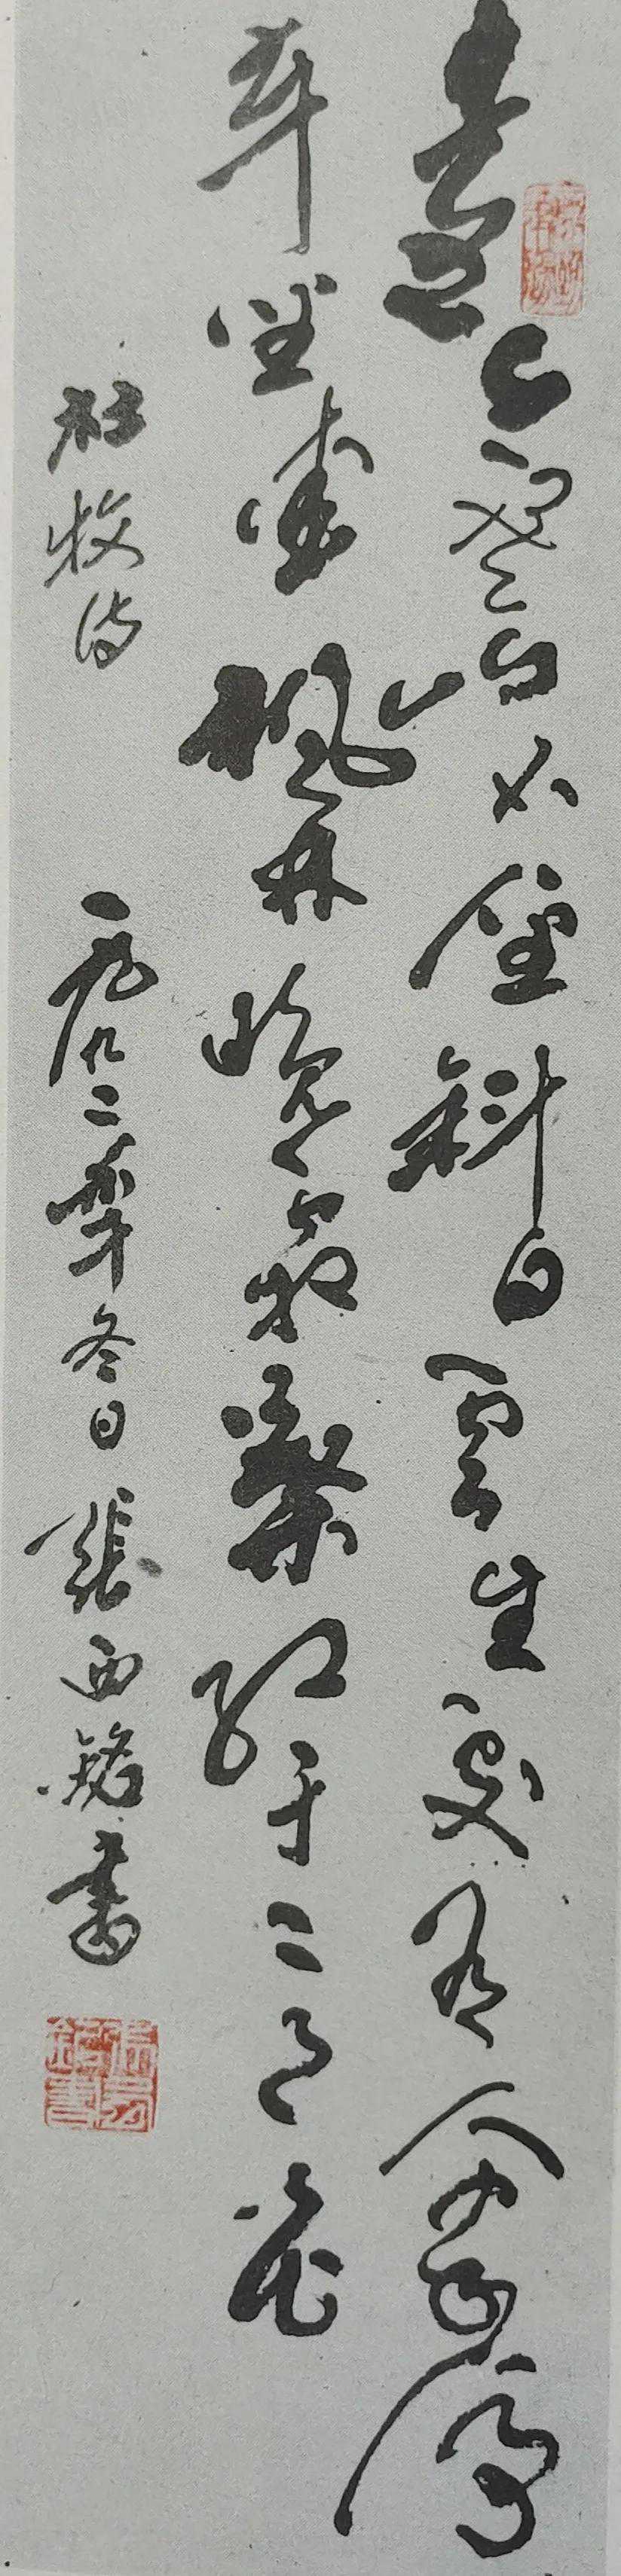 遠上寒山石徑斜白雲生處有人家停
車坐愛楓林晚霜葉紅于二月花
杜牧诗 一九九二年冬日 張西銘書